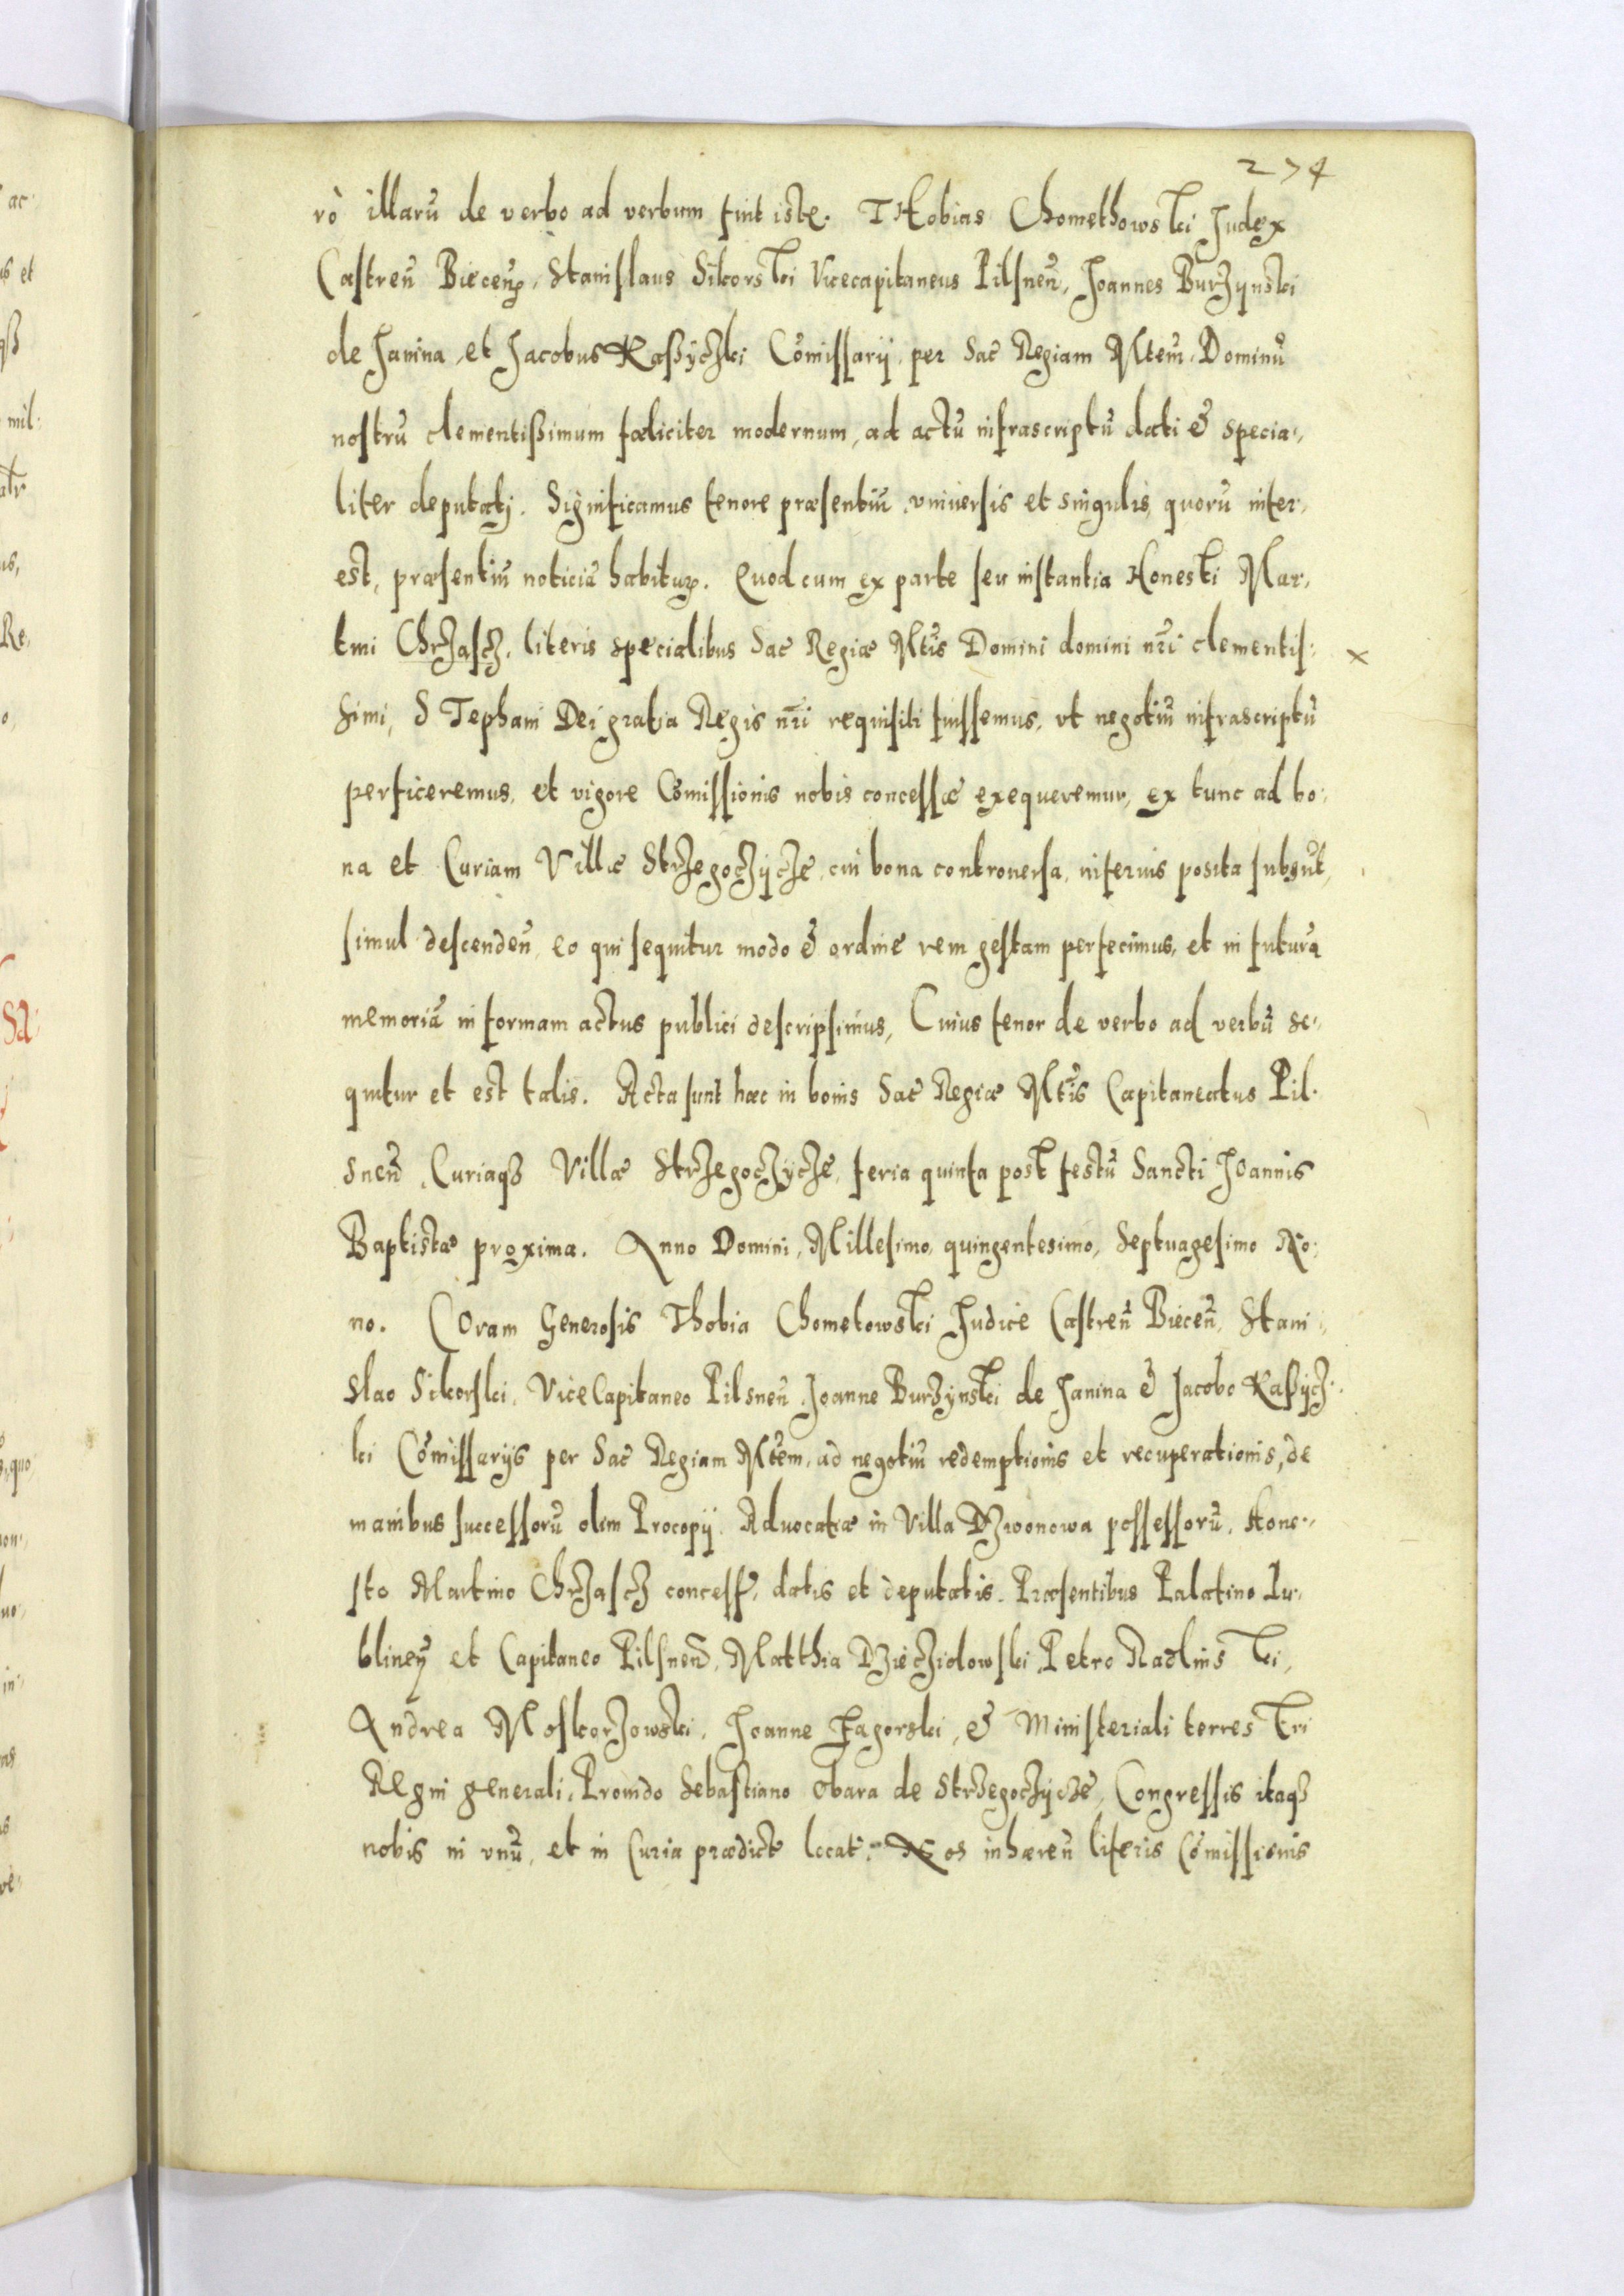 274
rò illarũ de verbo ad verbum sunt iste. THobias Chomethowski Judex
Castreñ Bieceñ, Stanislaus Sikorski Vicecapitaneus Pilsneñ, Joannes Burzynski
de Janina, et Jacobus Kaßyczki Comissarij per Sac Regiam Mtem Dominũ
nostrũ clementißimum fæliciter modernum, ad actũ infrascriptũ dati & specia,
liter deputatj. Significamus tenore præsentiũ vniuersis et singulis quorũ inter,
est, præsentiũ noticiã habitur. Quod cum ex parte seu instantia Honesti Mar,
tini Chrząscz, literis specialibus Sac Regiæ Mtis Domini domini nri clementis: x
simi, STephani Dei gratia Regis nri requisiti fuissemus, vt negotiũ infrascriptũ
perficeremus, et vigore Cõmissionis nobis concessæ exequeremur, ex tunc ad bo:
na et Curiam Villæ Strzegoczycze, cui bona controuersa, inferius posita subsũt,
simul descendeñ, eo qui sequitur modo & ordine rem gestam perfecimus, et in futurã
memoriã in formam actus publici descripsimus, Cuius tenor de verbo ad verbũ se,
quitur et est talis. Acta sunt hæc in bonis Sac Regiæ Mtis Capitaneatus Pil.
sneñ, Curiaqʒ Villæ Strzegoczycze, feria quinta post festũ Sancti Joannis
Baptistæ proxima. Anno Domini, Millesimo, quingentesimo, Septuagesimo No:
no. COram Generosis Thobia Chometowski Judice Castreñ Bieceñ, Stani,
slao Sikorski, ViceCapitaneo Pilsneñ Joanne Burzynski de Janina & Jacobo Kaßycz.
ki Cõmissarijs per Sac Regiam Mtem, ad negotiũ redemptionis et recuperationis, de
manibus successorũ olim Procopij Aduocatiæ in Villa Dzwonowa possessorũ, Hone,
sto Martino Chrząscz concess, datis et deputatis. Præsentibus Palatino Lu,
blineñ et Capitaneo Pilsneñ, Matthia Dziecziolowski, Petro Radlinski,
Andrea Moskorzowski, Joanne Zagorski, & Ministeriali terrestri
Regni generali, Prouido Sebastiano Obara de Strzegoczycze, Congressis itaqʒ
nobis in vnũ, et in Curia prædict locat: Nos inhæreñ literis Cõmissionis